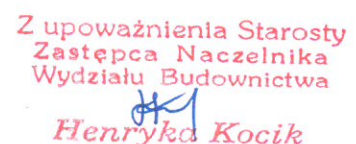 Z upoważnienia Starosty
Zastępca Naczelnika
Wydziału Budownictwa
Henryka Kocik